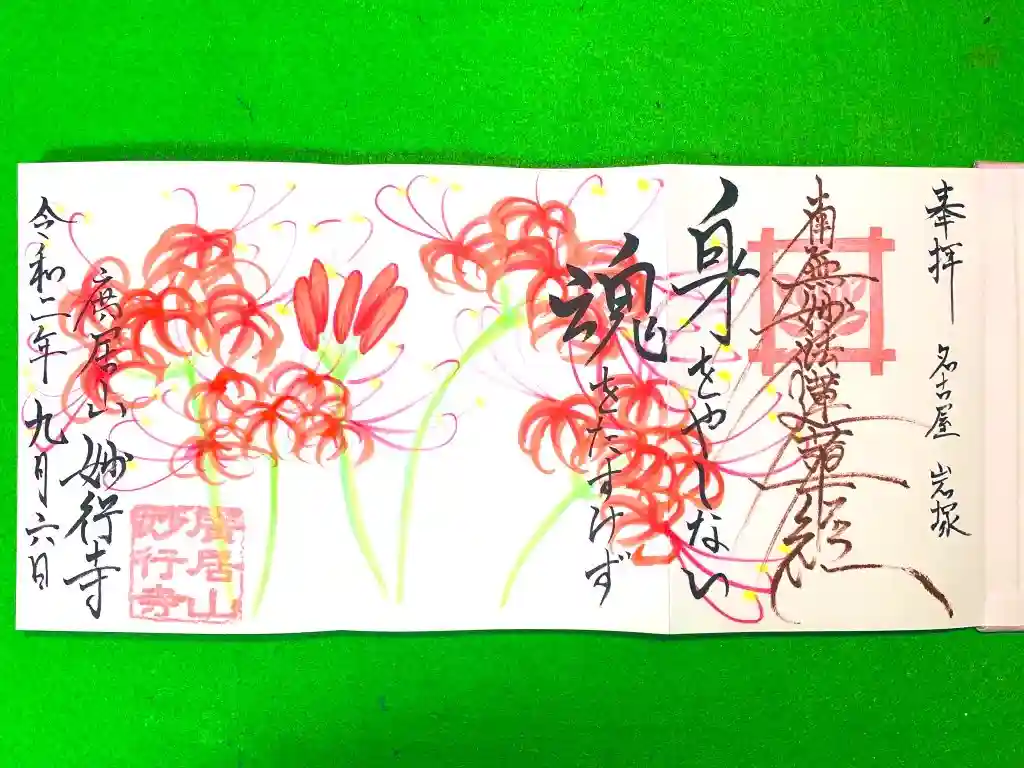 奉拝 名古屋 岩塚
南無妙法蓮華経
身をやしない
魂をたすけず
廣居山 妙行寺
令和二年 九月六日
廣居山
妙行寺